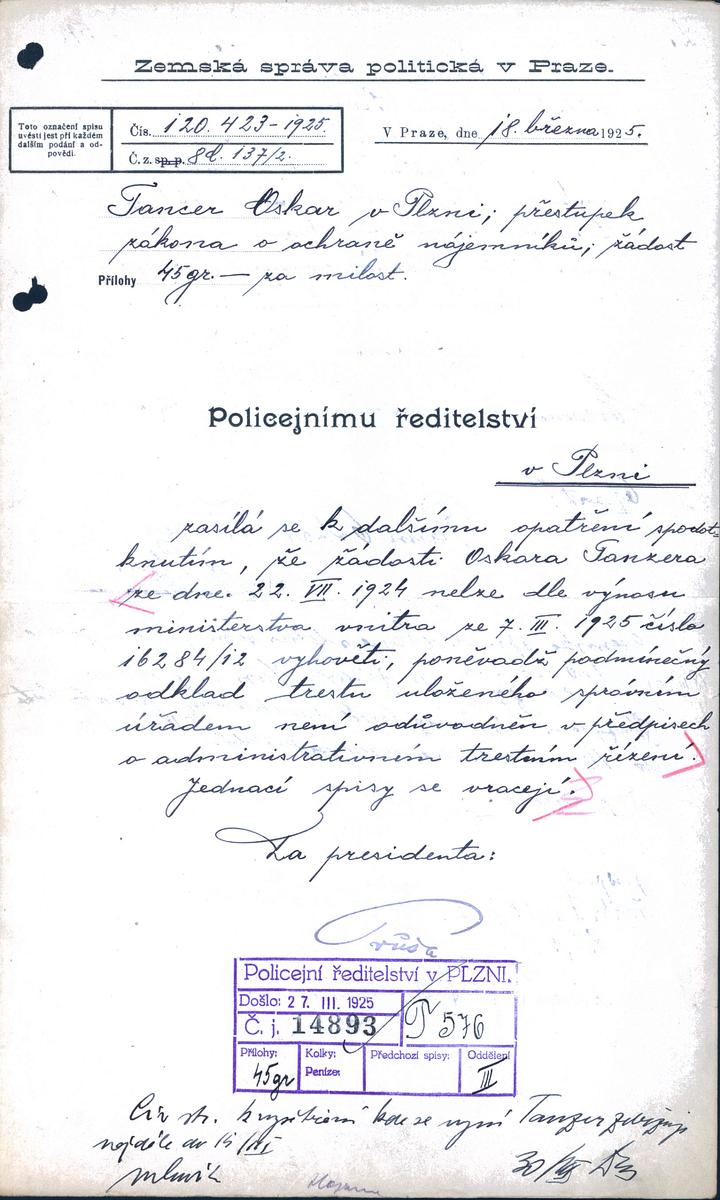 Zemská správa politická v Praze.
Toto označení spisu
uvésti jest při každém
dalším podání a od-
povědi.
Čís. 120.423-1925.
Č. z. sp. p. 8d. 137/2.
V Praze, dne 18. března 1925.
Tancer Oskar v Plzni; přestupek
zákona o ochraně nájemníků; žádost
Přílohy 45gr. — za milost.
Policejnímu ředitelství
v Plzni
zasílá se k dalšímu opatření s podot-
knutím, že žádosti Oskara Tanzera
ze dne. 22. VII. 1924 nelze dle výnosu
ministerstva vnitra ze 7. III. 1925 číslo
16284/12 vyhověti, poněvadž podmínečný
odklad trestu uloženého správním
úřadem není odůvodněn v předpisech
o administrativném trestním řízení.
Jednací spisy se vracejí.
Za presidenta:
Policejní ředitelství v PLZNI.
Došlo: 27. III. 1925
Č. j. 14893
T 576
Přílohy: 45gr
Kolky:
Peníze:
Předchozí spisy:
Oddělení III
Civ. str. k vyšetření kde se nyní Tanzer zdržuje
nejdéle do 15/IV
30/III